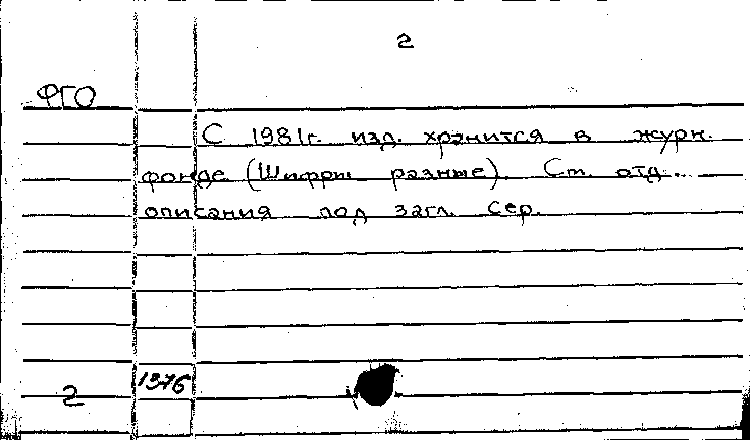 2
ФГО
С 1981г. изд. хранится в журн.
фонде (Шифры разные). См. отд.
описания под загл. сер.
1376
2